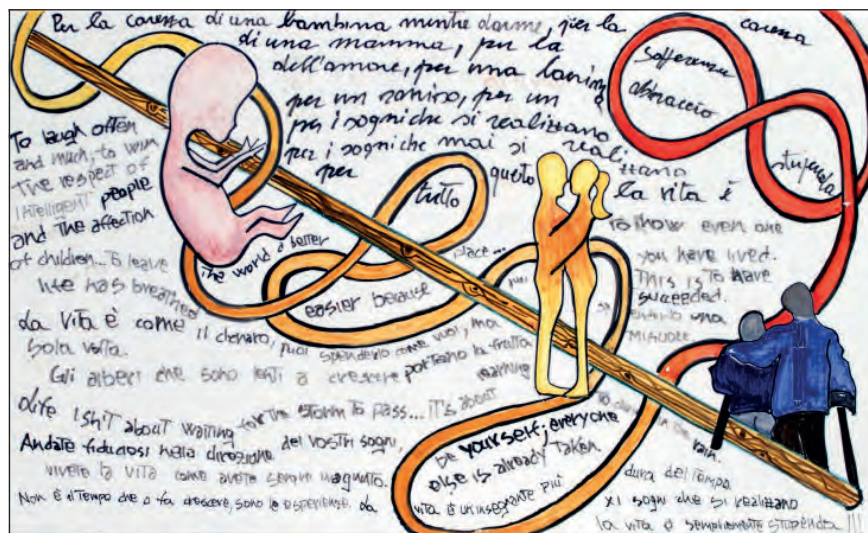 Per la carezza di una bambina mentre dorme, per la carezza
di una mamma, per la sofferenza
dell'amore, per una lacrima
per un sorriso, per un abbraccio
per i sogni che si realizzano
per i sogni che mai si realizzano
per tutto questo la vita è stupenda
To laugh often
and much; to win
The respect of
intelligent people
and The affection
of children... To leave The world a better place...
life has breathed easier because
To know even one
you have lived.
This is To have
succeeded.
La vita è come il denaro, puoi spenderlo come vuoi, ma
sola volta.
Gli alberi che sono lenti a crescere portano la frutta
life isn't about waiting for The storm To pass... it's about learning
rain.
Andate fiduciosi nella direzione dei vostri sogni,
vivete la vita come avete sempre
be yourself; everyone
else is already Taken.
Non è il Tempo che ci fa crescere, sono le esperienze. La vita è un insegnante più
dura del Tempo.
x i sogni che si realizzano
la vita è semplicemente stupenda !!!